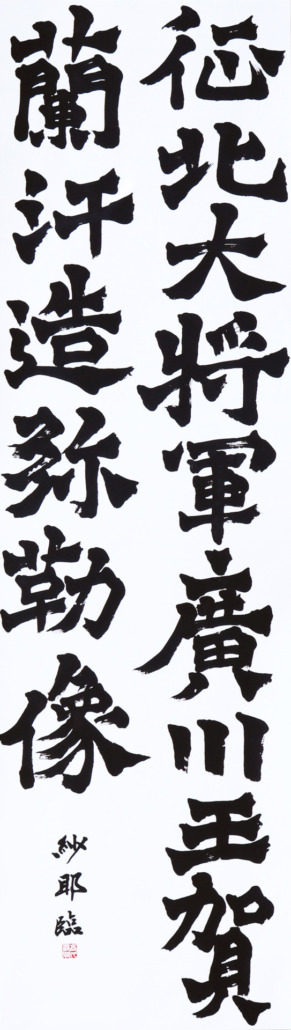 征北大将軍廣川王賀
蘭汗造弥勒像
紗耶臨